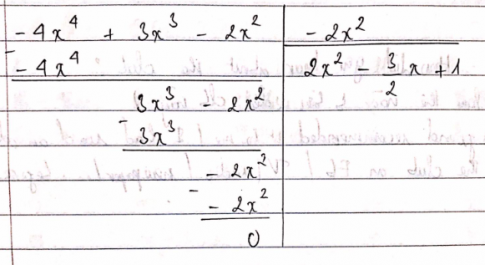 -4x⁴ + 3x³ - 2x² | -2x²
- -4x⁴ | 2x² - 3/2 x + 1
3x³ - 2x²
- 3x³
- 2x²
- - 2x²
0